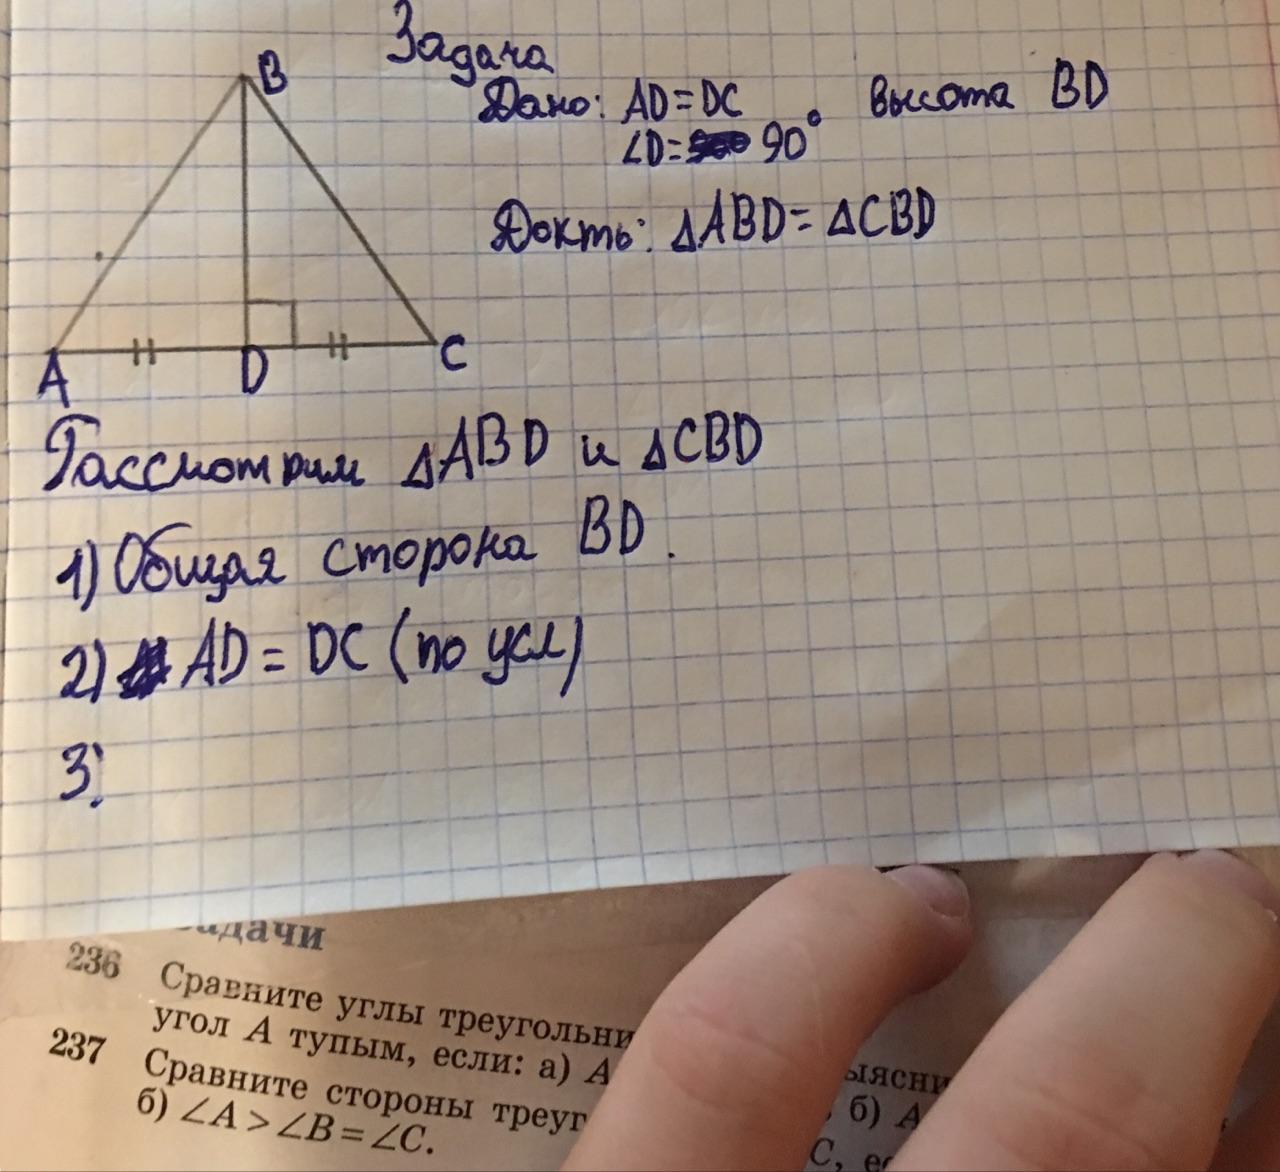 Задача
B
Дано: AD = DC высота BD
∠D = 90°
Докть: △ABD = △CBD
A D C
Рассмотрим △ABD и △CBD
1) Общая сторона BD.
2) AD = DC (по усл)
3)
задачи
236 Сравните углы треугольни
угол A тупым, если: а) A
237 Сравните стороны треуг б) A
б) ∠A > ∠B = ∠C. C,